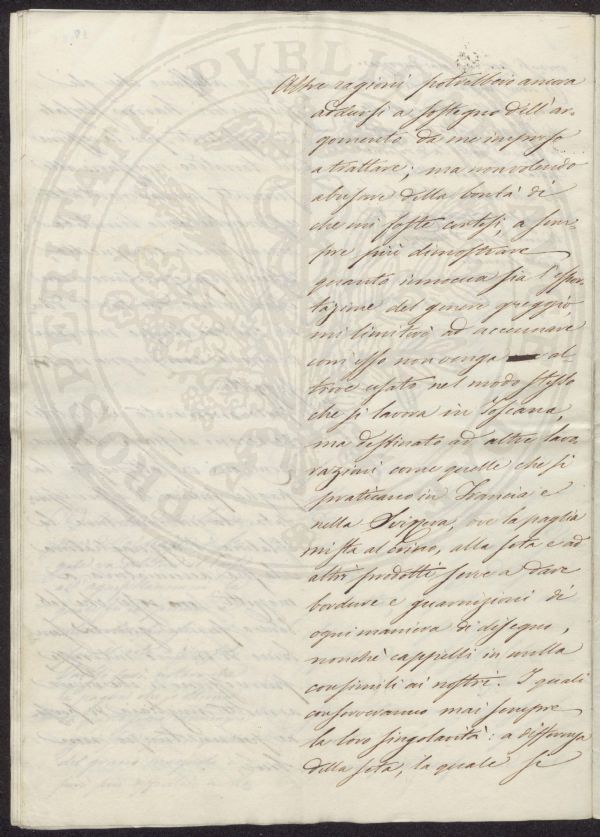 Altre ragioni potrebbero ancora
addursi a sostegno dell'ar-
gomento da me impreso
a trattare; ma non volendo
abusare della bontà di
che mi foste cortesi, a sem-
pre più dimostrare
quanto innocua sia l'espor-
tazione del genere greggio,
mi limiterò ad accennare
com'esso non venga al-
trove usato nel modo stesso
che si lavora in Toscana,
ma destinato ad altre lavo-
razioni come quelle che si
praticano in Francia e
nella Svizzera, ove la paglia
mista al Crino, alla seta e ad
altri prodotti serve a dare
bordure e guarnizioni di
ogni maniera di disegno,
nonchè cappelli in nulla
consimili ai nostri. I quali
conserveranno mai sempre
la loro singolarità: a differenza
della seta, la quale se
PROSPERITAT PVBLI